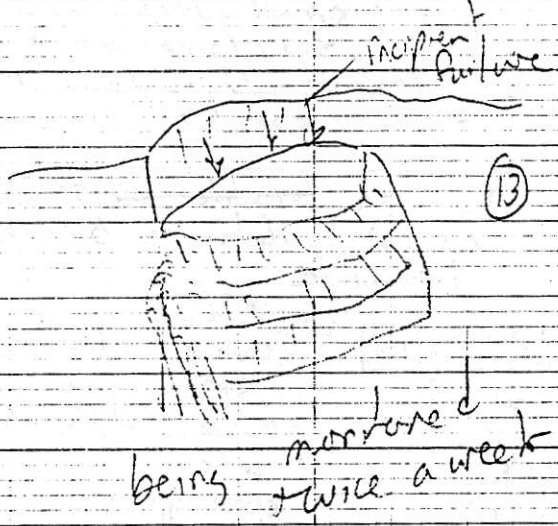 incipient
failure
13
being monitored
twice a week